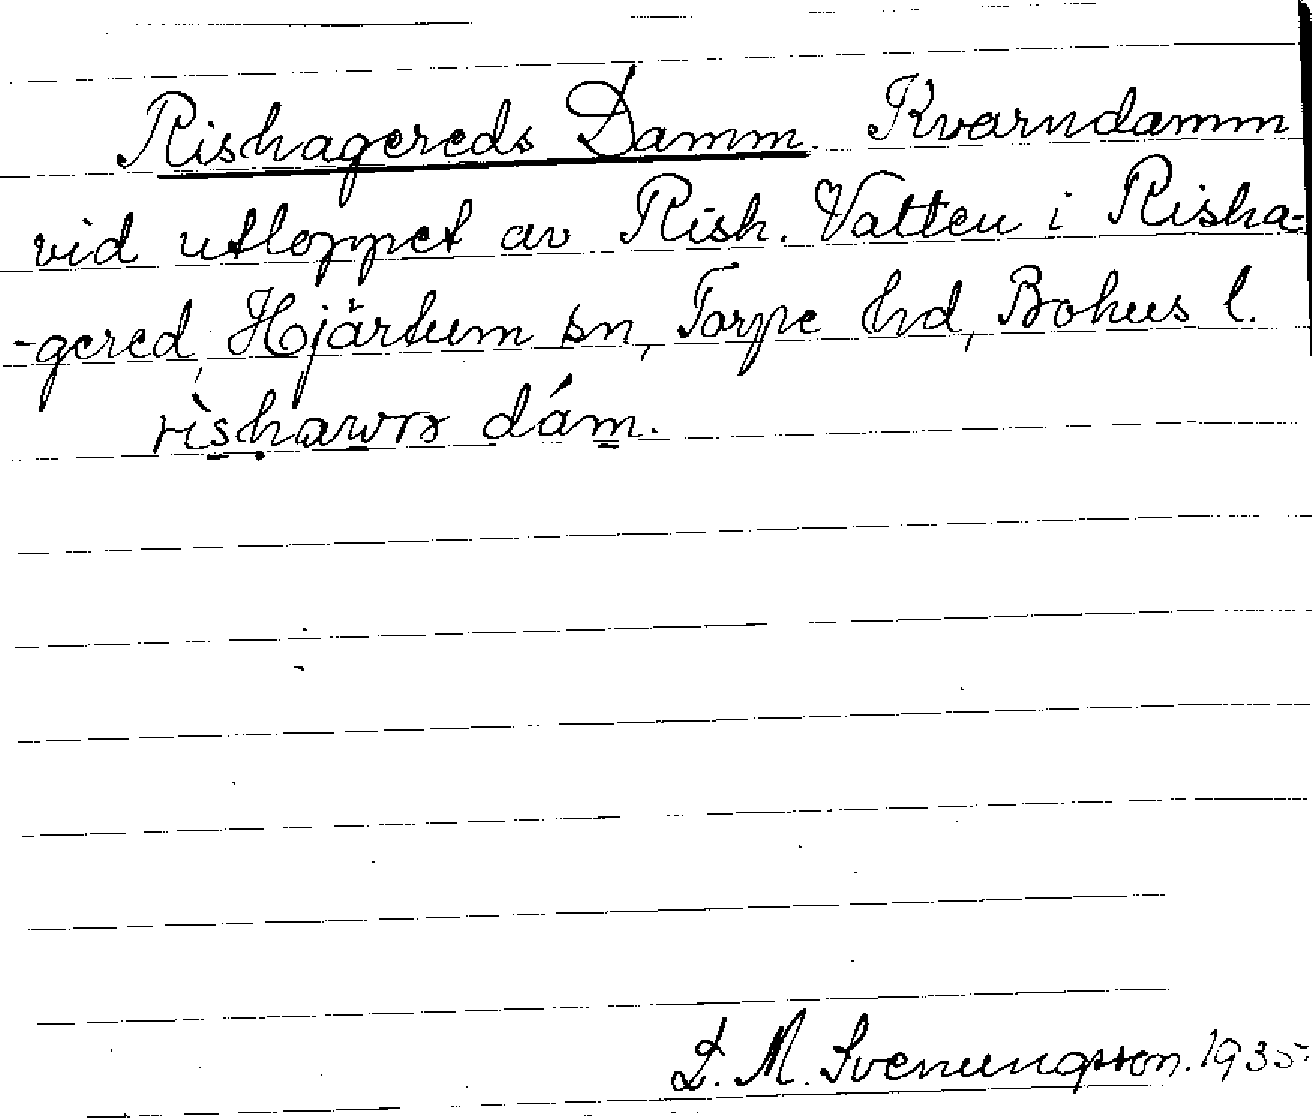 Rishagereds Damm. Kvarndamm
vid utloppet av Rish. Vatten i Risha-
-gered, Hjärtum sn, Torpe hd, Bohus l.
dám.
L. M. Svenungsson. 1935.